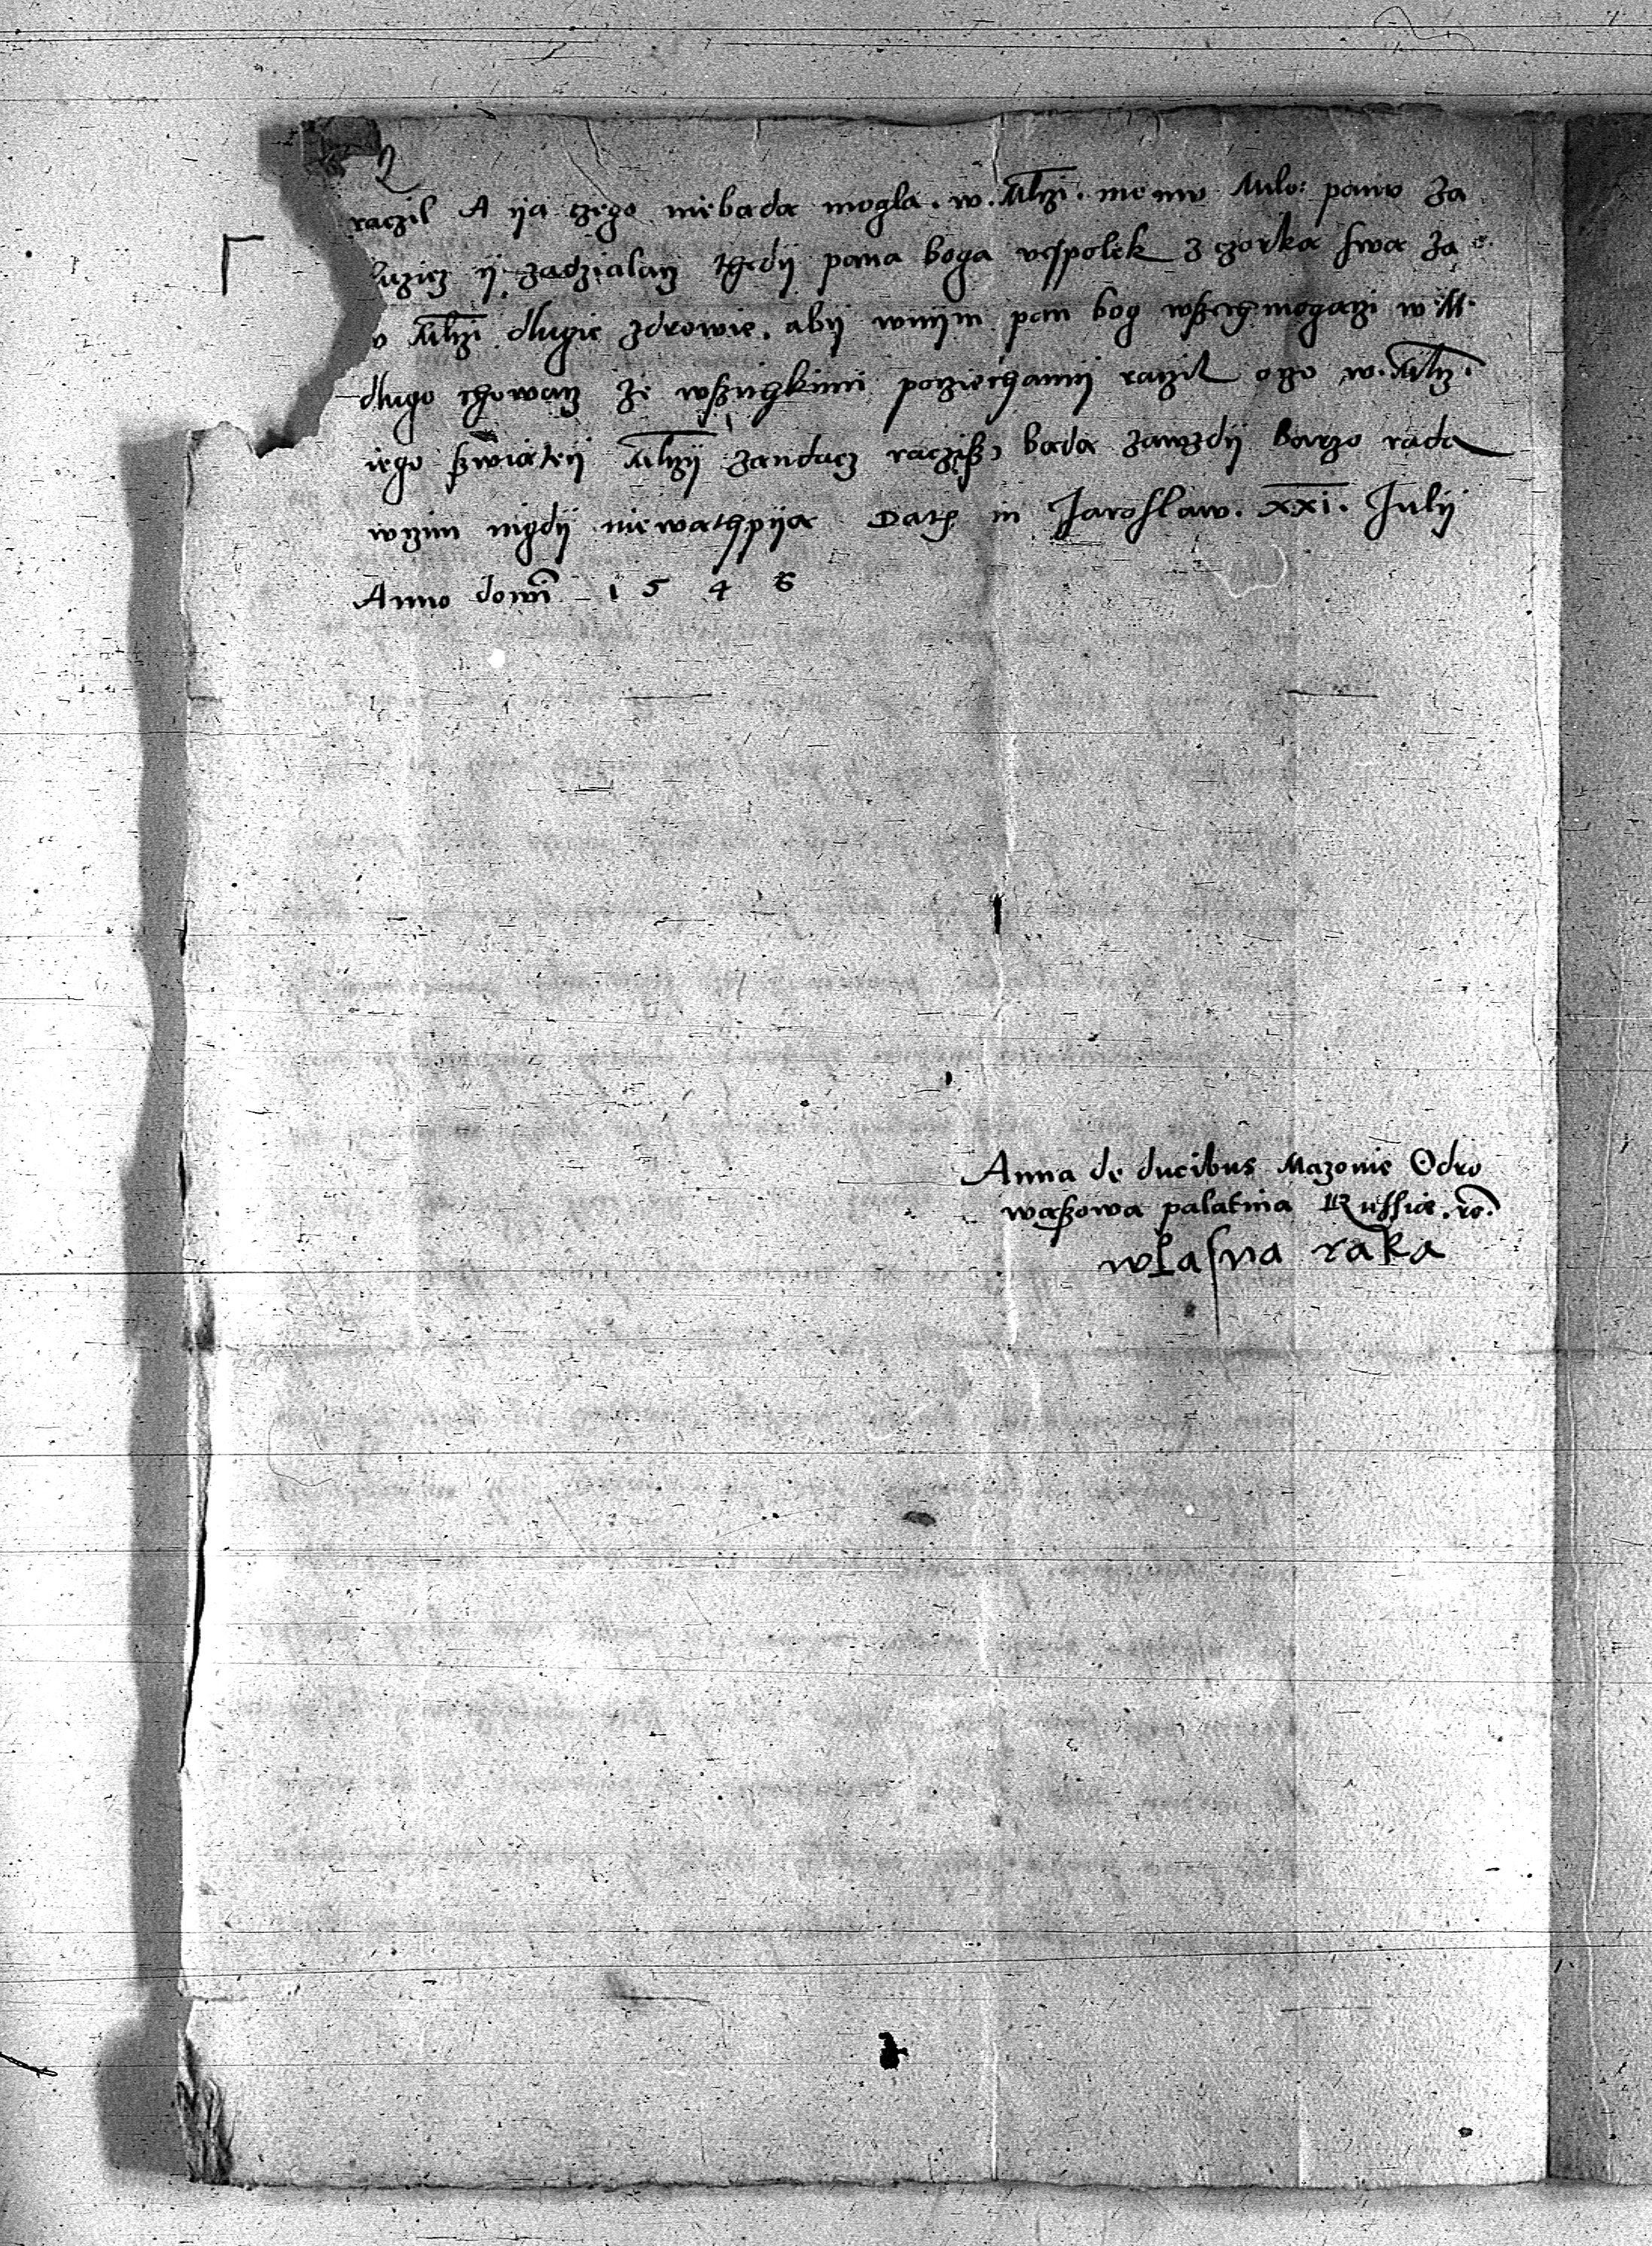 raczil A ija czego niebada mogla. w. Mczi. memu Milo: panu za
luzicz ij zadzialacz thedij pana boga wespolek z czorka swa za
w Mczi dlugie zdrowie. abij wnijm pan bog wssechmogaczi w. M.
dlugo chowacz ze wssitchkimi pocziechamij raczil oczo w. Mcz.
iego sswiatej Mczij zandacz racziss, bada zawzdij barzo rada
wczim nigdij niewathpija Dath in Jaroslaw. XXI. Julij
Anno domi 1546
Anna de ducibus Mazouie Odro
wassowa palatina Russiæ. rc.
własna raka